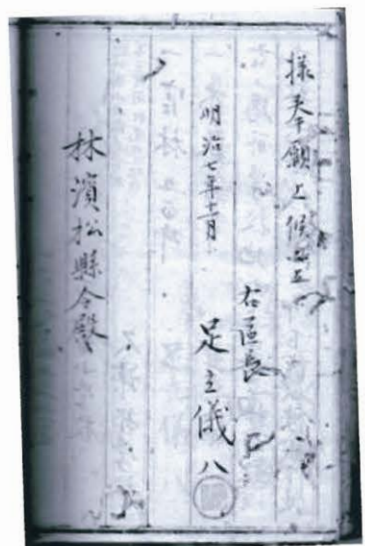 様奉願上候以上
右区長
足立儀八
明治七年十一月
林濱松縣令殿